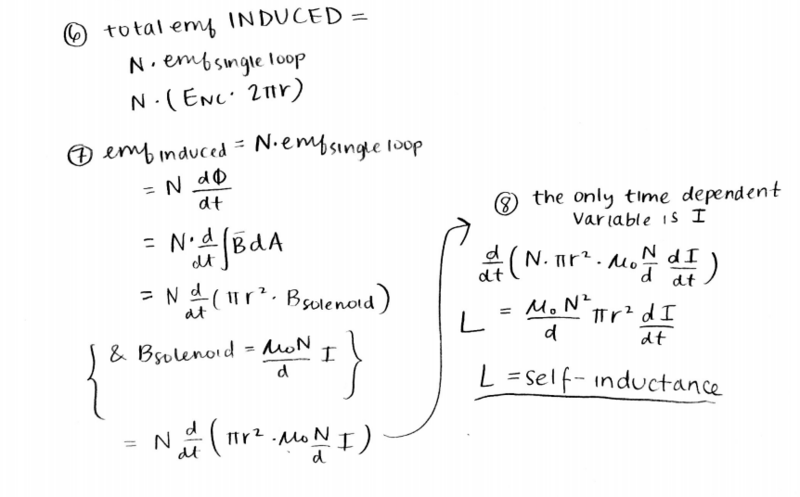 ⑥ total emf INDUCED =
N · emf single loop
N · (E_NC · 2πr)
⑦ emf induced = N · emf single loop
= N dΦ/dt
= N · d/dt ∫ B̄ dA
= N d/dt (πr² · B_solenoid)
{ & B_solenoid = μ₀N/d I }
= N d/dt (πr² · μ₀ N/d I)
⑧ the only time dependent
variable is I
d/dt (N · πr² · μ₀ N/d dI/dt)
L = μ₀N²/d πr² dI/dt
L = self-inductance